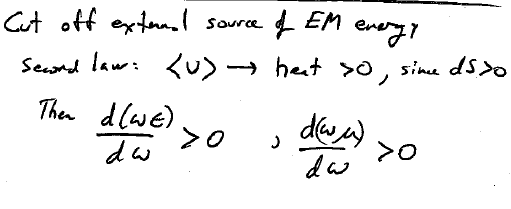 Cut off external source of EM energy
Second law: <U> → heat >0, since dS>0
Then d(ωϵ)/dω >0 , d(ωμ)/dω >0